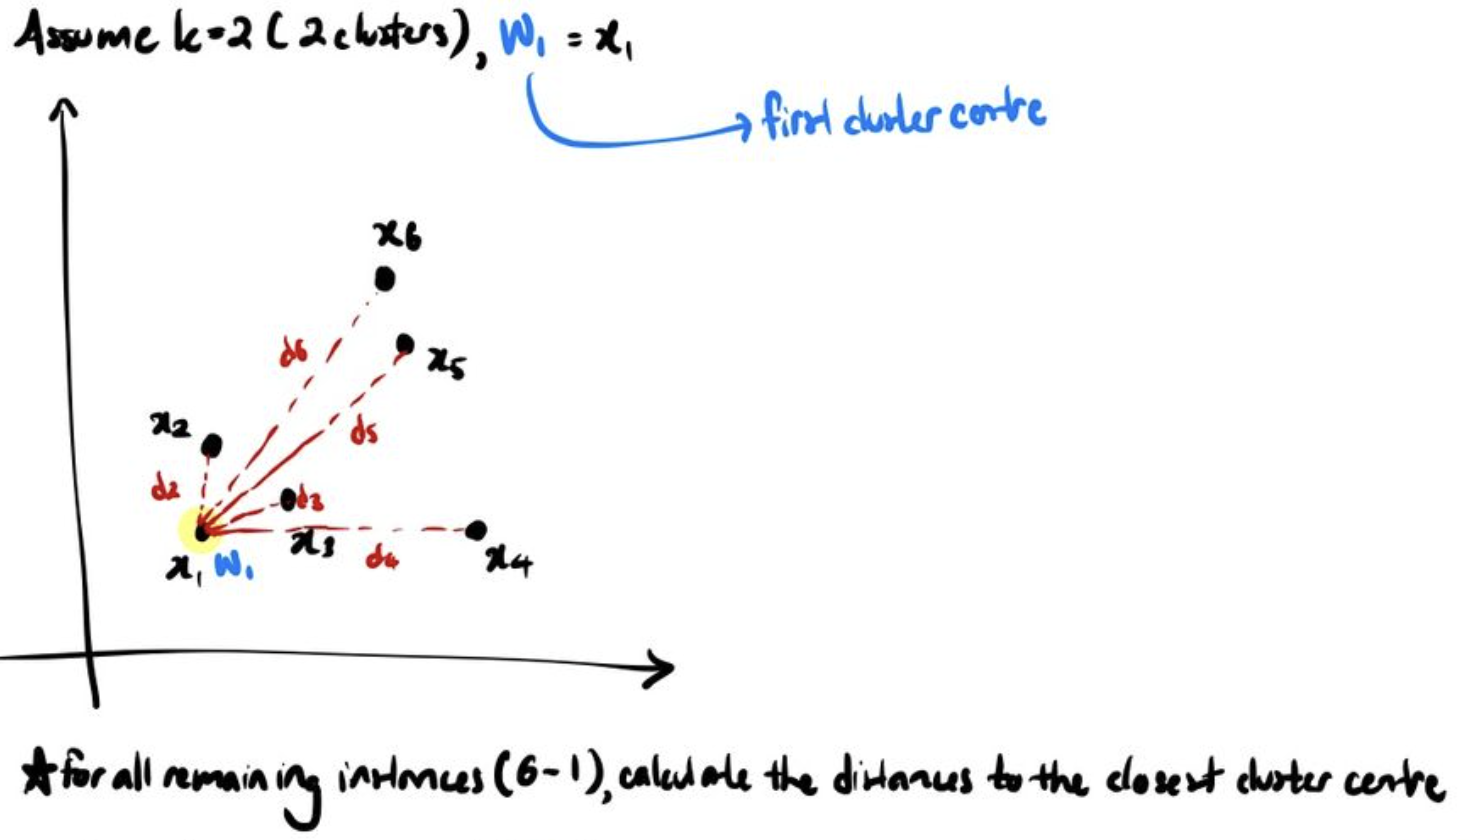 Assume k=2 (2 clusters), W₁ = x₁
first cluster centre
x6
d6
x5
x2
d5
d2
d3
x3
x4
x₁ W₁
d4
☆for all remaining instances (6-1), calculate the distances to the closest cluster centre